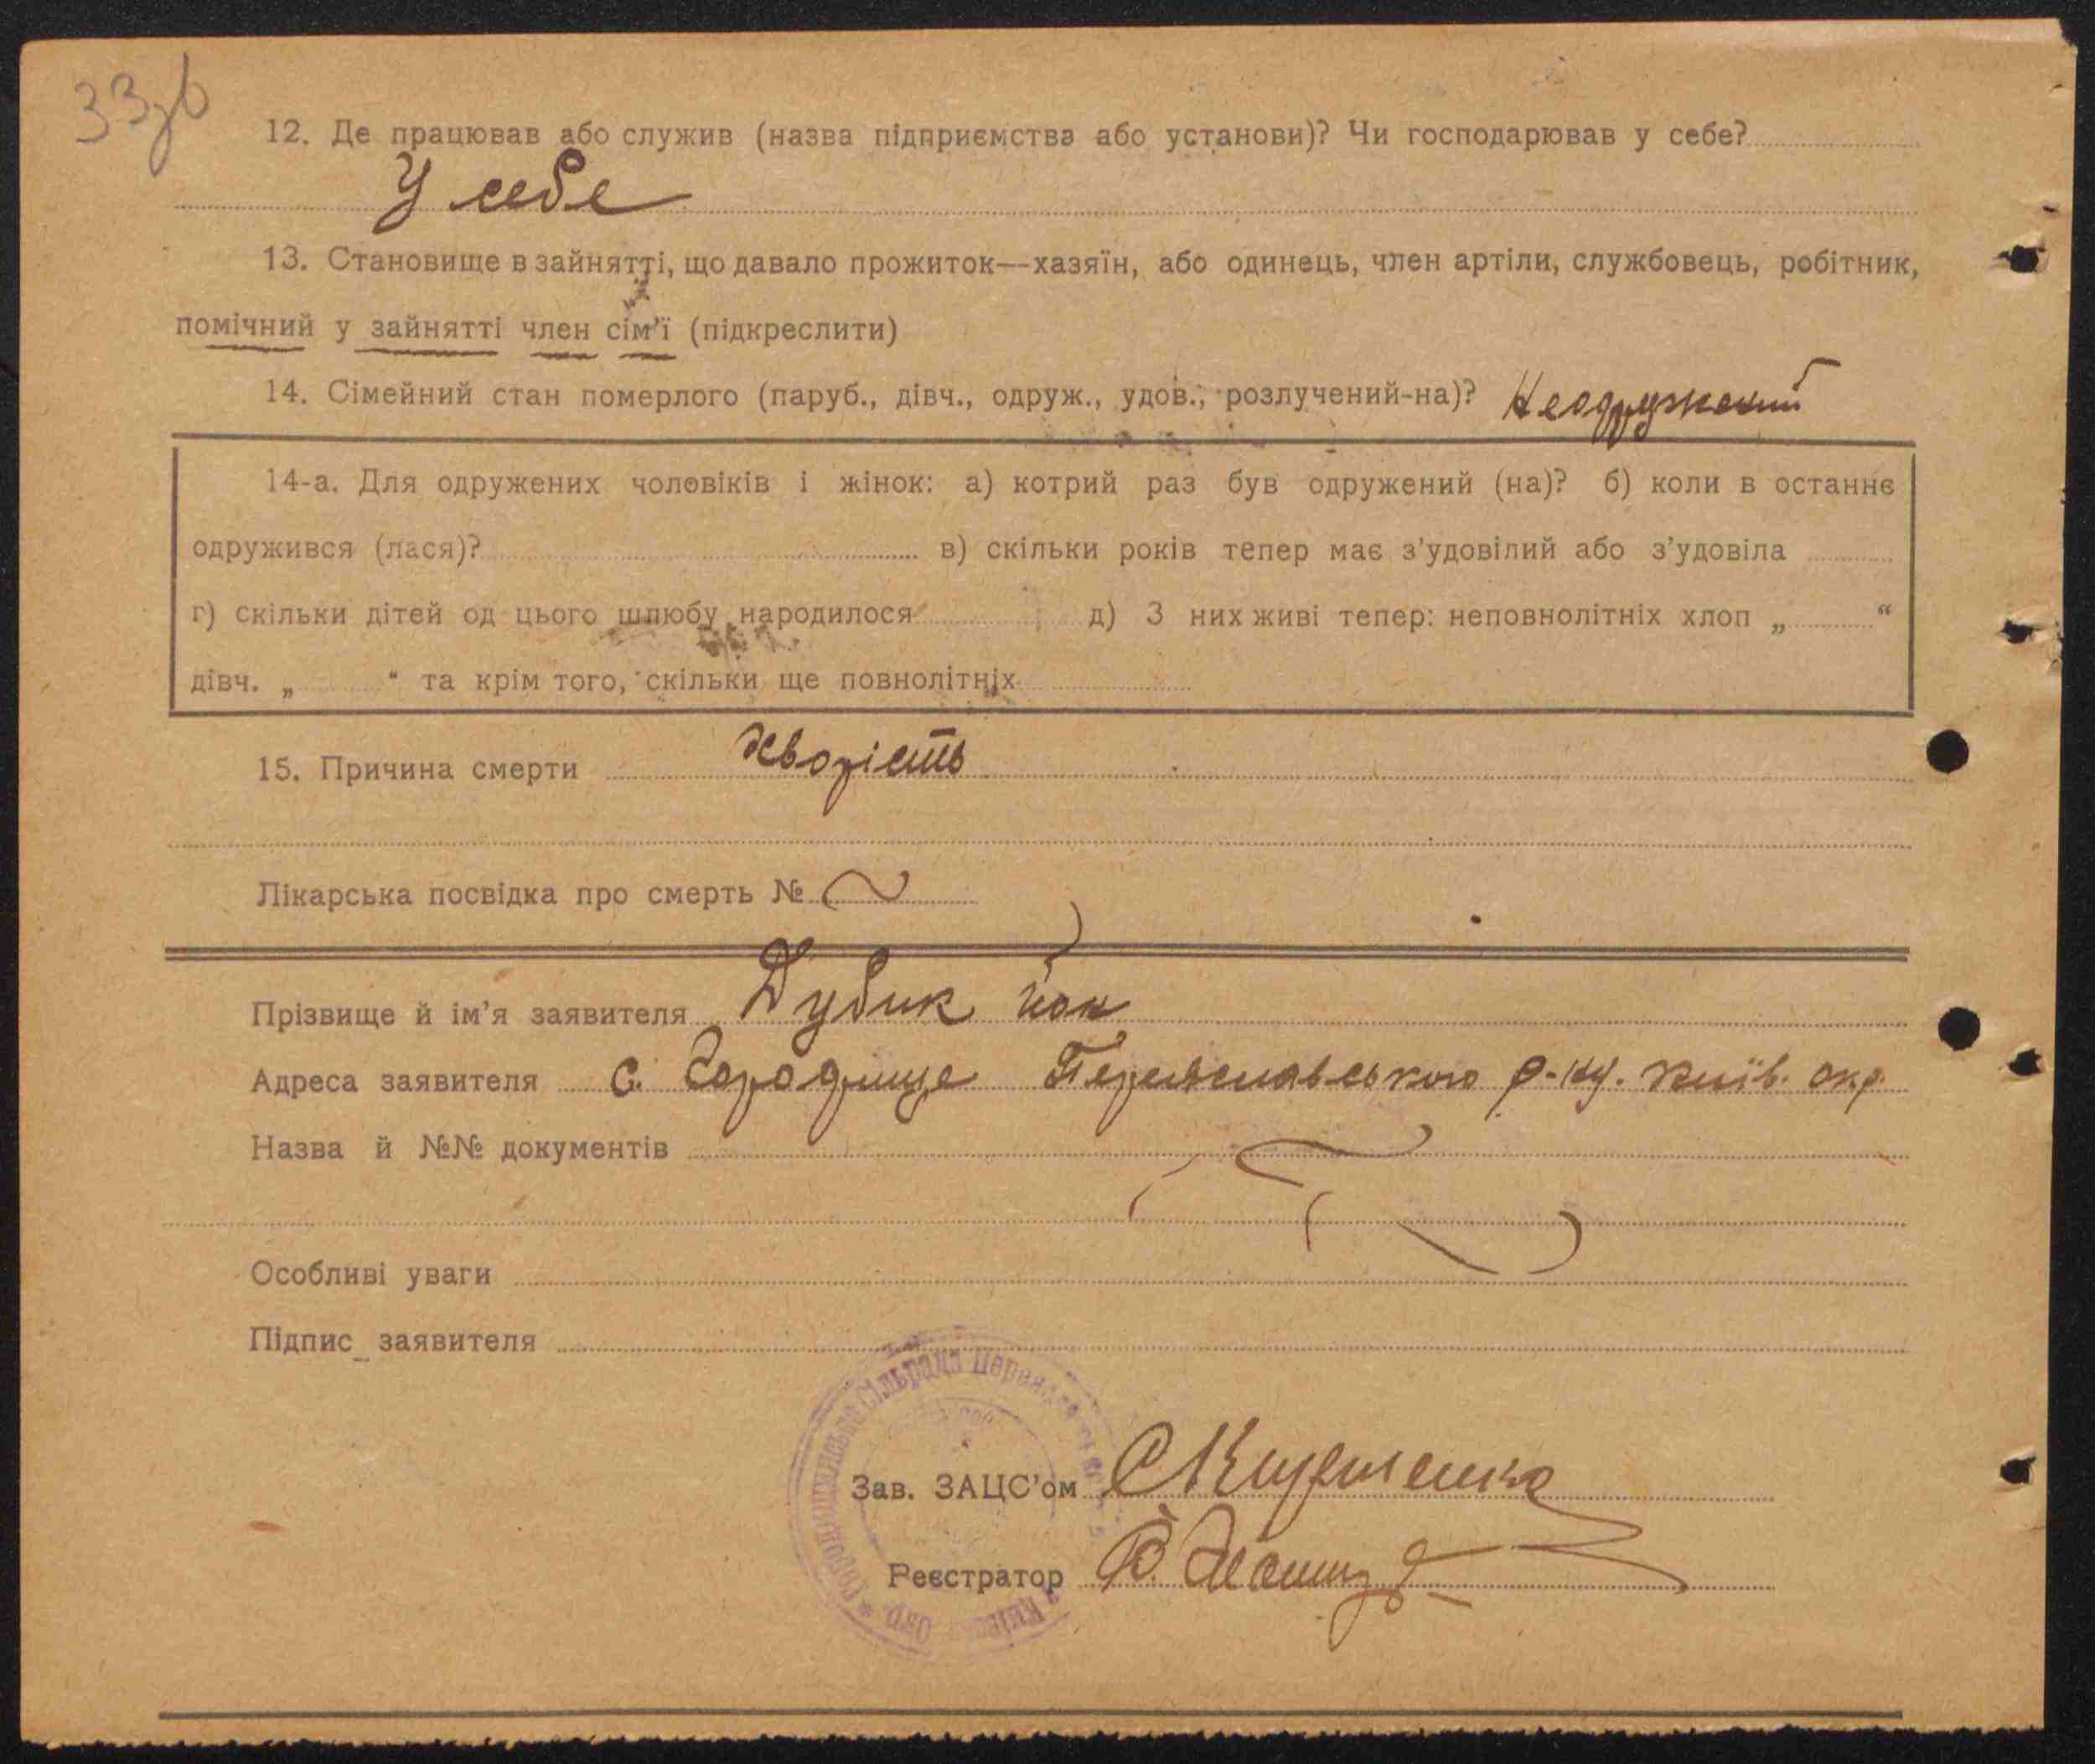 33зв
12. Де працював або служив (назва підприємства або установи)? Чи господарював у себе?
У себе
13. Становище в зайнятті, що давало прожиток—хазяїн, або одинець, член артіли, службовець, робітник,
помічний у зайнятті член сім'ї (підкреслити)
14. Сімейний стан померлого (паруб., дівч., одруж., удов., розлучений-на)? Неодружений
14-а. Для одружених чоловіків і жінок: а) котрий раз був одружений (на)? б) коли в останнє
одружився (лася)? в) скільки років тепер має з'удовілий або з'удовіла
г) скільки дітей од цього шлюбу народилося д) З них живі тепер: неповнолітніх хлоп „ “
дівч. „ “ та крім того, скільки ще повнолітніх
15. Причина смерти хворість
Лікарська посвідка про смерть №
Прізвище й ім'я заявителя Дубик
Адреса заявителя с. Городище Переяславського р-ну. Київ. окр.
Назва й №№ документів
Особливі уваги
Підпис заявителя
Зав. ЗАЦС'ом
Реєстратор